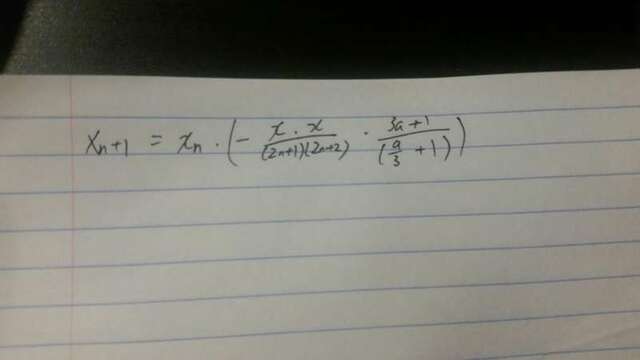 x_{n+1} = x_n · (- \frac{x · x}{(2n+1)(2n+2)} · \frac{3a+1}{(\frac{a}{3} + 1)})